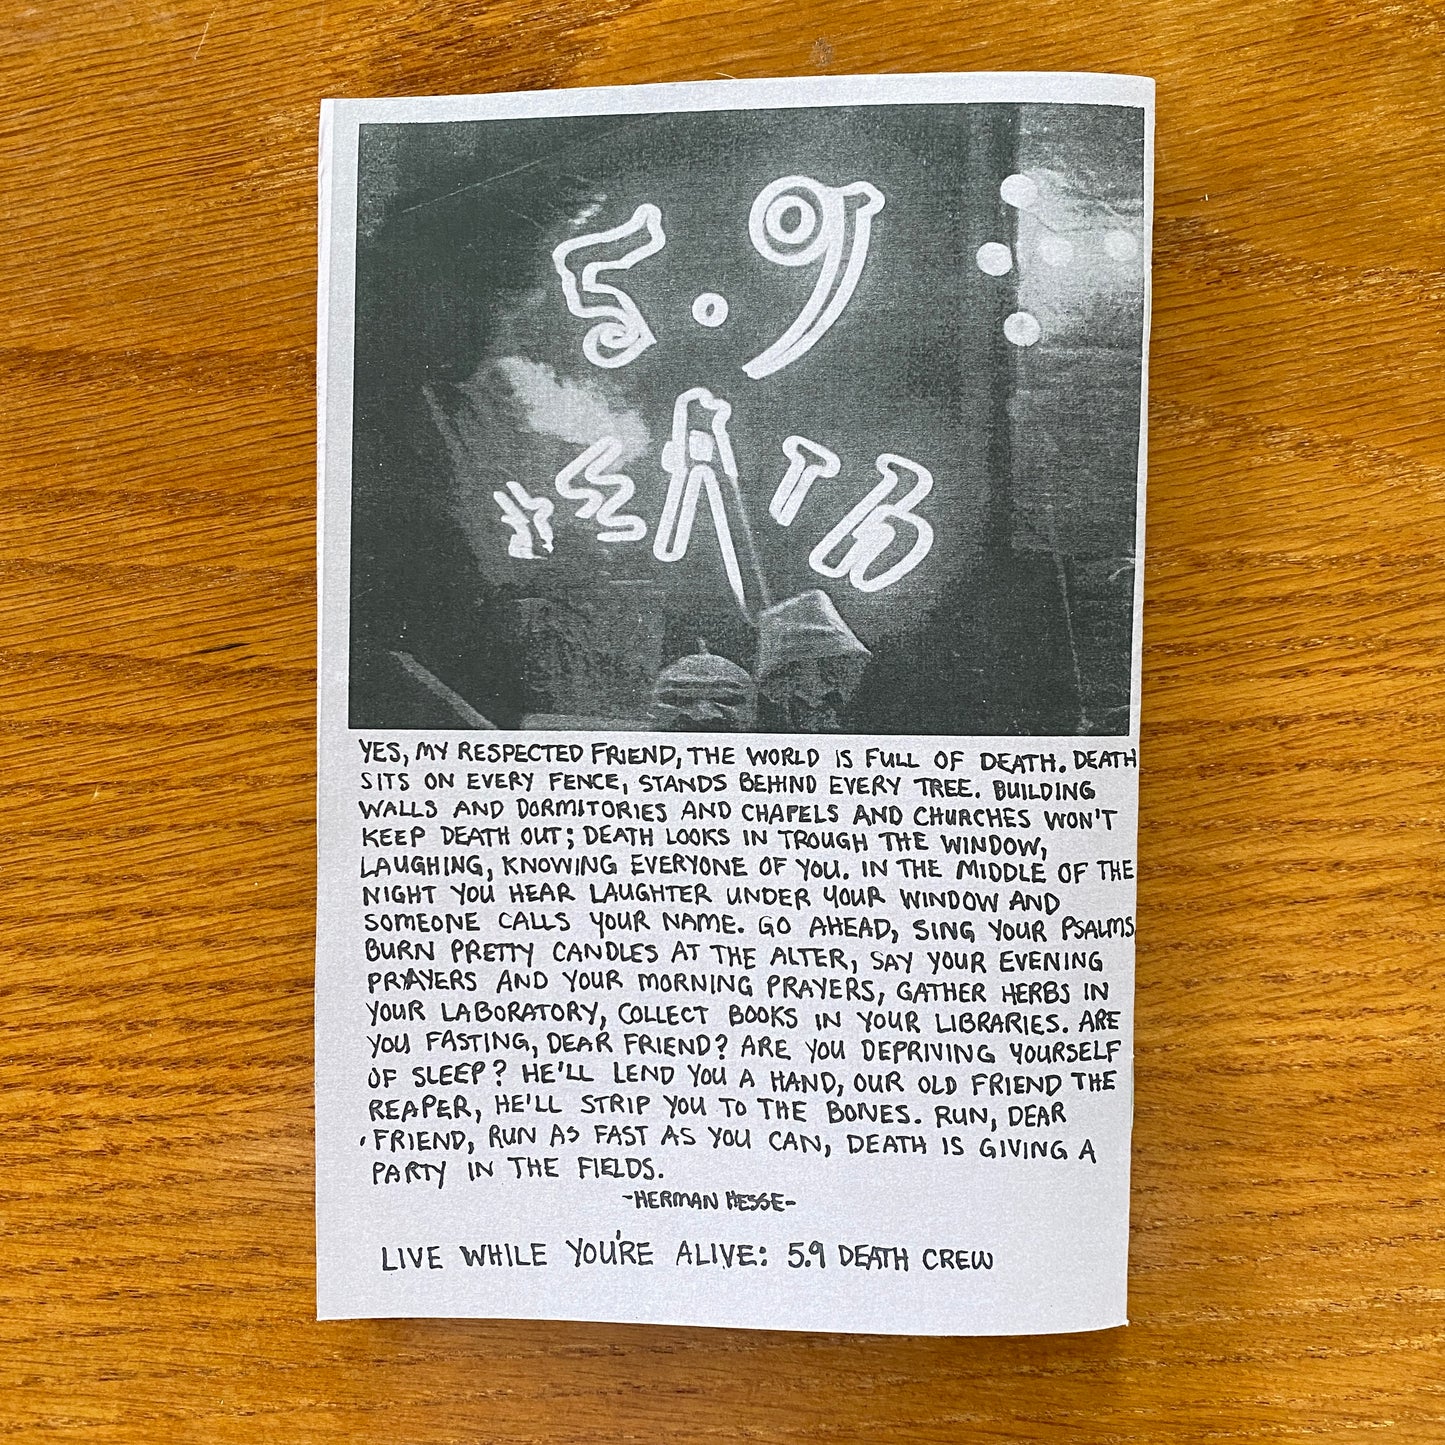 5.9
DEATH
YES, MY RESPECTED FRIEND, THE WORLD IS FULL OF DEATH. DEATH
SITS ON EVERY FENCE, STANDS BEHIND EVERY TREE. BUILDING
WALLS AND DORMITORIES AND CHAPELS AND CHURCHES WON'T
KEEP DEATH OUT; DEATH LOOKS IN TROUGH THE WINDOW,
LAUGHING, KNOWING EVERYONE OF YOU. IN THE MIDDLE OF THE
NIGHT YOU HEAR LAUGHTER UNDER YOUR WINDOW AND
SOMEONE CALLS YOUR NAME. GO AHEAD, SING YOUR PSALMS,
BURN PRETTY CANDLES AT THE ALTER, SAY YOUR EVENING
PRAYERS AND YOUR MORNING PRAYERS, GATHER HERBS IN
YOUR LABORATORY, COLLECT BOOKS IN YOUR LIBRARIES. ARE
YOU FASTING, DEAR FRIEND? ARE YOU DEPRIVING YOURSELF
OF SLEEP? HE'LL LEND YOU A HAND, OUR OLD FRIEND THE
REAPER, HE'LL STRIP YOU TO THE BONES. RUN, DEAR
FRIEND, RUN AS FAST AS YOU CAN, DEATH IS GIVING A
PARTY IN THE FIELDS.
-HERMAN HESSE-
LIVE WHILE YOU'RE ALIVE: 5.9 DEATH CREW